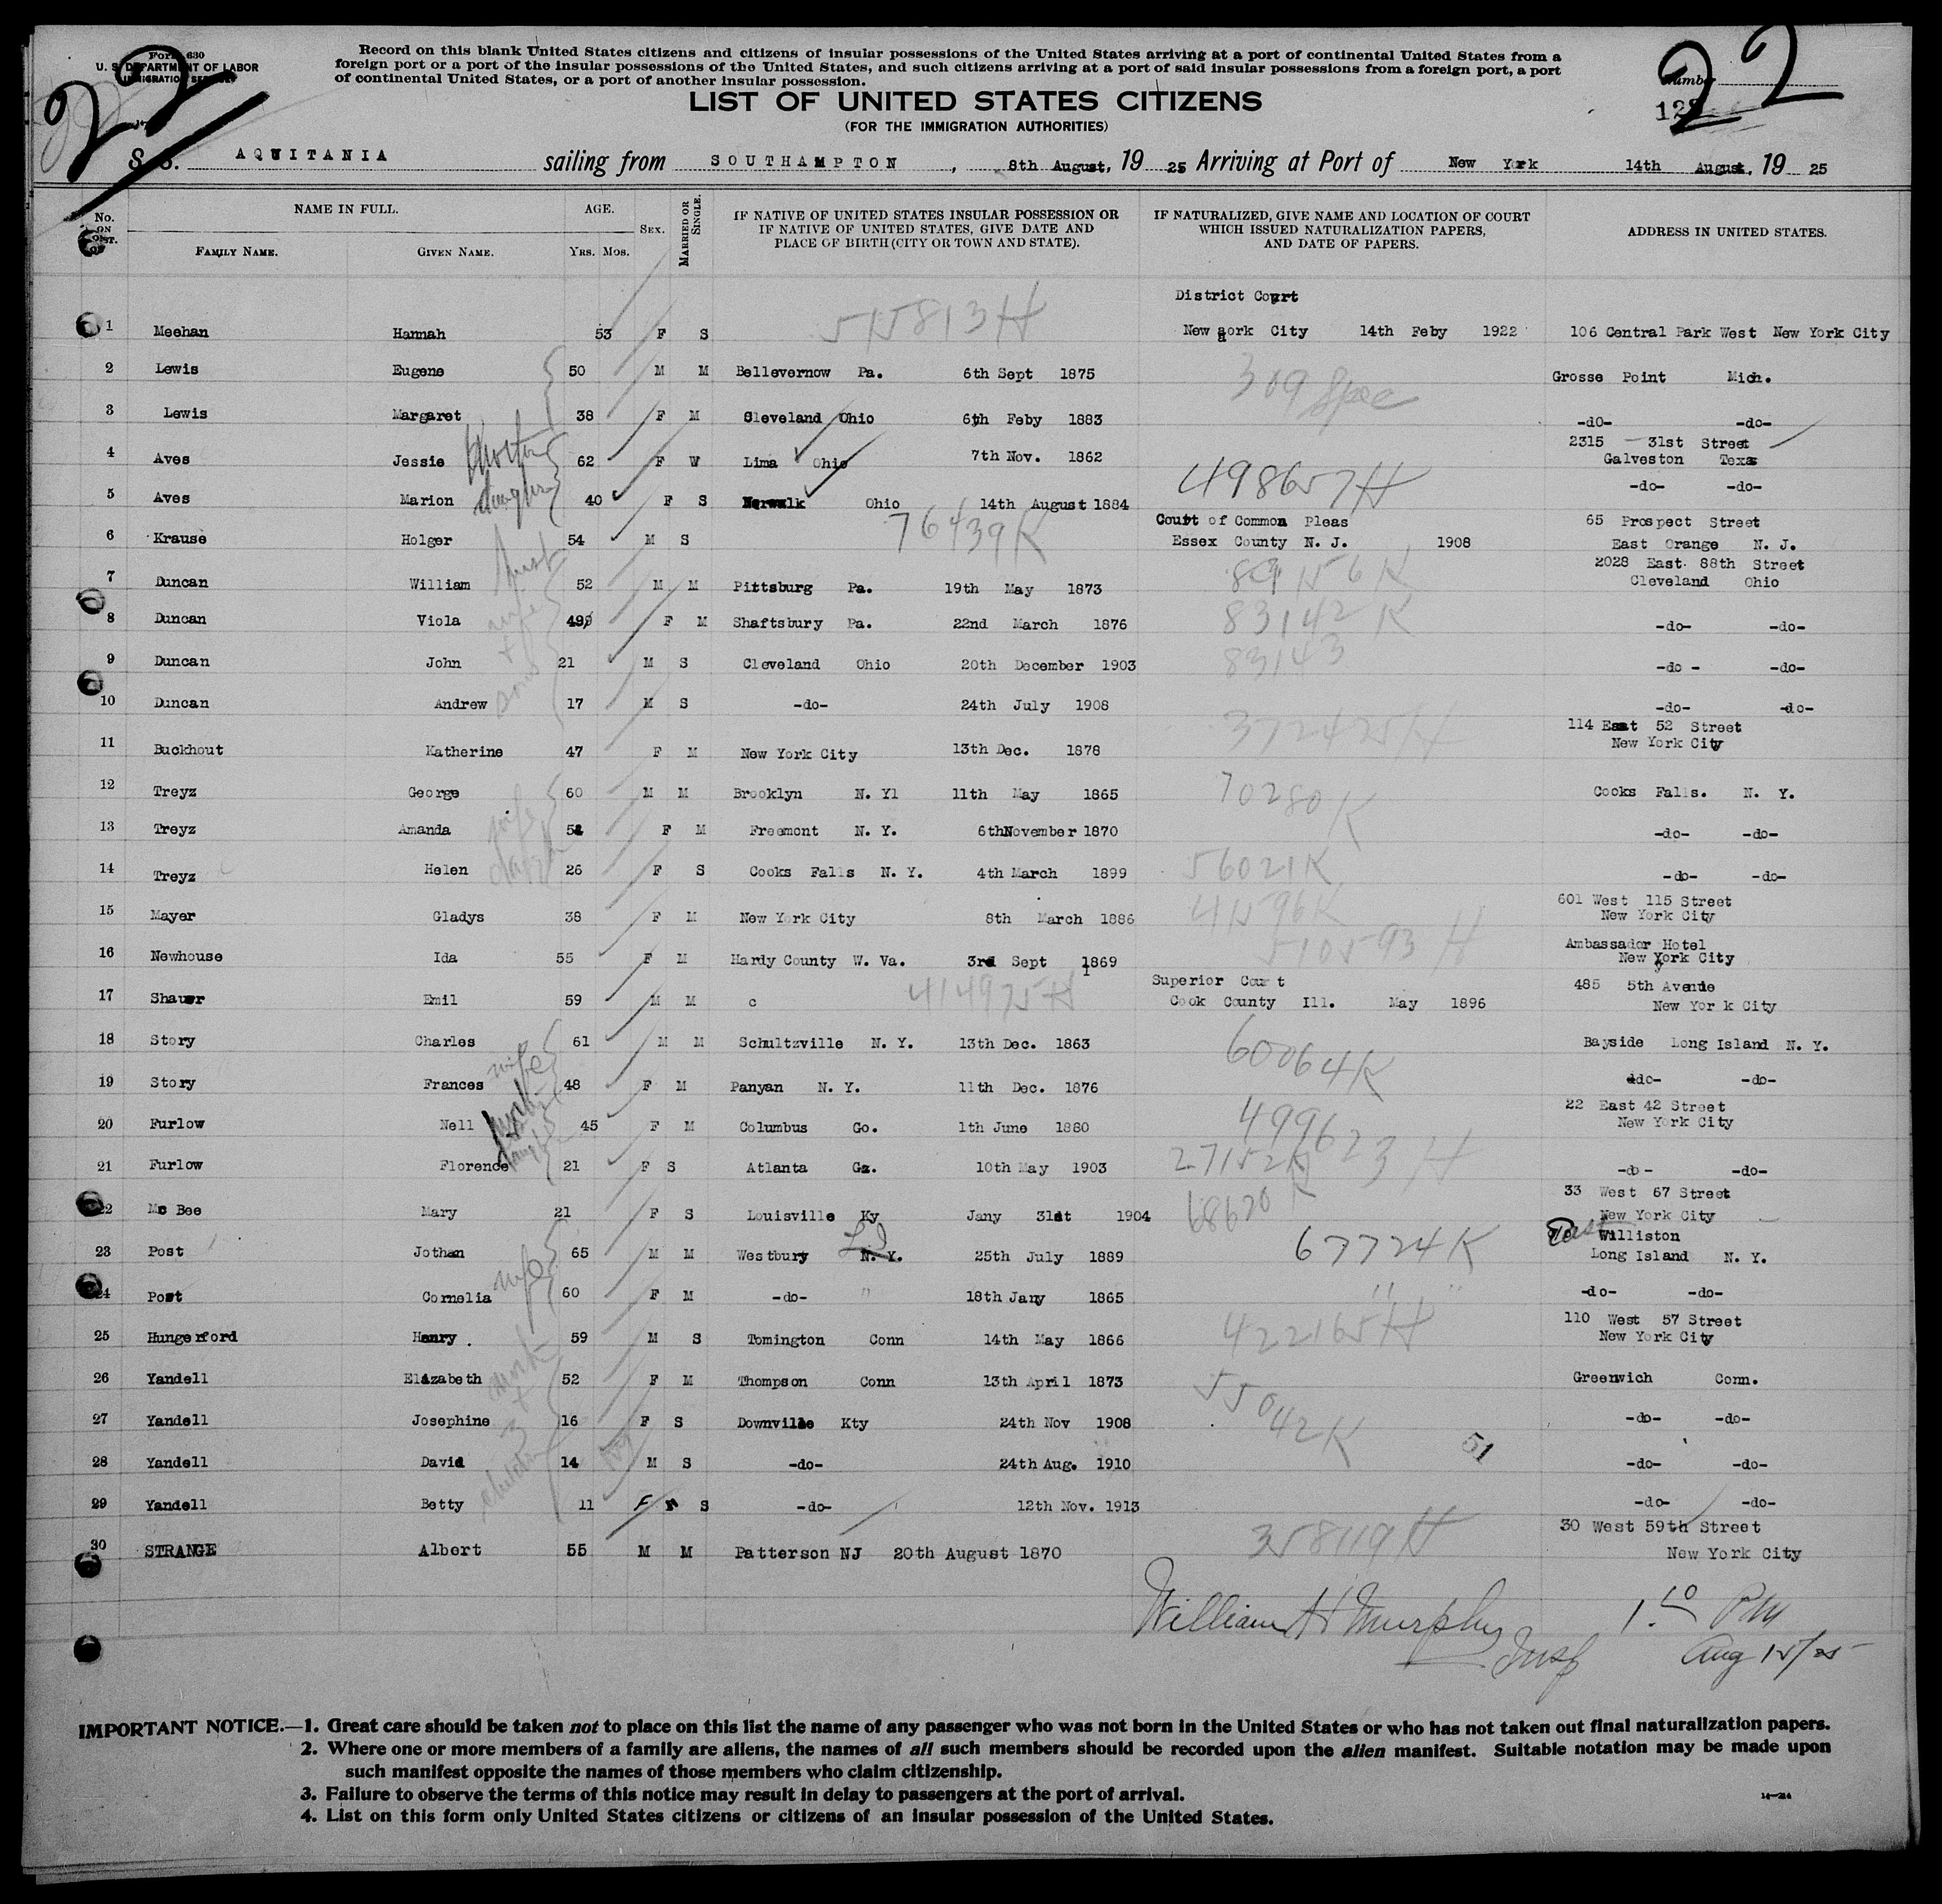 Form 630
U. S. DEPARTMENT OF LABOR
IMMIGRATION SERVICE
22
Record on this blank United States citizens and citizens of insular possessions of the United States arriving at a port of continental United States from a
foreign port or a port of the insular possessions of the United States, and such citizens arriving at a port of said insular possessions from a foreign port, a port
of continental United States, or a port of another insular possession.
Number 22
LIST OF UNITED STATES CITIZENS
(FOR THE IMMIGRATION AUTHORITIES)
S. S. AQUITANIA sailing from SOUTHAMPTON, 8th August, 19 25 Arriving at Port of New York 14th August, 19 25
No. ON LIST. NAME IN FULL. AGE. SEX. MARRIED OR SINGLE. IF NATIVE OF UNITED STATES INSULAR POSSESSION OR IF NATIVE OF UNITED STATES, GIVE DATE AND PLACE OF BIRTH (CITY OR TOWN AND STATE). IF NATURALIZED, GIVE NAME AND LOCATION OF COURT WHICH ISSUED NATURALIZATION PAPERS, AND DATE OF PAPERS. ADDRESS IN UNITED STATES.
FAMILY NAME. GIVEN NAME. YRS. MOS.
District Court
1 Meehan Hannah 53 F S 515813H New york City 14th Feby 1922 106 Central Park West New York City
2 Lewis Eugene 50 M M Bellevernow Pa. 6th Sept 1875 309 Spec Grosse Point Mich.
3 Lewis Margaret 38 F M Cleveland Ohio 6th Feby 1883 -do- -do-
2315 31st Street
4 Aves Jessie mother 62 F W Lima Ohio 7th Nov. 1862 Galveston Texas
5 Aves Marion daughter 40 F S Norwalk Ohio 14th August 1884 498657H -do- -do-
76439K Court of Common Pleas 65 Prospect Street
6 Krause Holger 54 M S Essex County N. J. 1908 East Orange N. J.
2028 East 88th Street
7 Duncan William 52 M M Pittsburg Pa. 19th May 1873 Cleveland Ohio
8 Duncan Viola wife 49 F M Shaftsbury Pa. 22nd March 1876 83142 K -do- -do-
9 Duncan John + 21 M S Cleveland Ohio 20th December 1903 83143 -do- -do-
10 Duncan Andrew sons 17 M S -do- 24th July 1908 -do- -do-
114 East 52 Street
11 Buckhout Katherine 47 F M New York City 13th Dec. 1878 372425H New York City
12 Treyz George 60 M M Brooklyn N. Yl 11th May 1865 70280K Cooks Falls. N. Y.
13 Treyz Amanda wife F M Freemont N. Y. 6thNovember 1870 -do- -do-
14 Treyz Helen daugh 26 F S Cooks Falls N. Y. 4th March 1899 56021K -do- -do-
601 West 115 Street
15 Mayer Gladys 38 F M New York City 8th March 1886 41596K New York City
Ambassador Hotel
16 Newhouse Ida 55 F M Hardy County W. Va. 3rd Sept 1869 510593 H New York City
Superior Court 485 5th Avenue
17 Shauer Emil 59 M M c 414975H Cook County Ill. May 1896 New Yor k City
18 Story Charles 61 M M Schultzville N. Y. 13th Dec. 1863 60064K Bayside Long Island N. Y.
19 Story Frances wife 48 F M Panyan N. Y. 11th Dec. 1876 -do- -do-
22 East 42 Street
20 Furlow Nell 45 F M Columbus Go. 1th June 1880 499623 H New York City
21 Furlow Florence 21 F S Atlanta Ga. 10th May 1903 27152K -do- -do-
33 West 67 Street
22 Mc Bee Mary 21 F S Louisville Ky Jany 31st 1904 68620 K New York City
East Williston
23 Post Jothan 65 M M Westbury L.I. N. Y. 25th July 1889 67724K Long Island N. Y.
24 Post Cornelia wife 60 F M -do- " 18th Jany 1865 " " -do- -do-
110 West 57 Street
25 Hungerford Henry . 59 M S Tomington Conn 14th May 1866 422165H New York City
26 Yandell Elizabeth 52 F M Thompson Conn 13th April 1873 55042K Greenwich Conn.
27 Yandell Josephine + 16 F S Downville Kty 24th Nov 1908 -do- -do-
28 Yandell David 3 14 M S -do- 24th Aug. 1910 51 -do- -do-
29 Yandell Betty children 11 F S -do- 12th Nov. 1913 -do- -do-
30 West 59th Street
30 STRANGE Albert 55 M M Patterson NJ 20th August 1870 New York City
William H Murphy Insp
1.10 PM
Aug 15/25
IMPORTANT NOTICE.—1. Great care should be taken not to place on this list the name of any passenger who was not born in the United States or who has not taken out final naturalization papers.
2. Where one or more members of a family are aliens, the names of all such members should be recorded upon the alien manifest. Suitable notation may be made upon
such manifest opposite the names of those members who claim citizenship.
3. Failure to observe the terms of this notice may result in delay to passengers at the port of arrival.
4. List on this form only United States citizens or citizens of an insular possession of the United States.